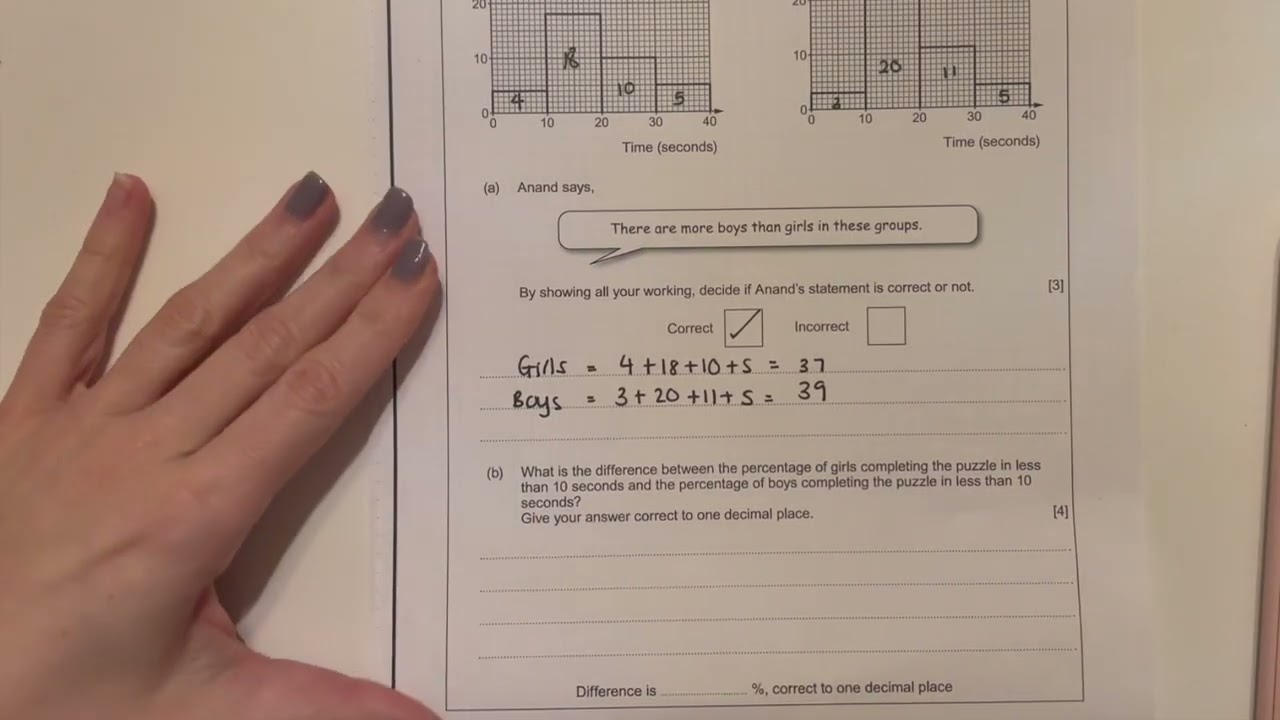 20 20
10 18 10 20 11
4 10 5 3 5
0 0
0 10 20 30 40 0 10 20 30 40
Time (seconds) Time (seconds)
(a) Anand says,
There are more boys than girls in these groups.
By showing all your working, decide if Anand's statement is correct or not. [3]
Correct ✓ Incorrect
Girls = 4 + 18 + 10 + 5 = 37
Boys = 3 + 20 + 11 + 5 = 39
(b) What is the difference between the percentage of girls completing the puzzle in less
than 10 seconds and the percentage of boys completing the puzzle in less than 10
seconds?
Give your answer correct to one decimal place. [4]
Difference is .......................... %, correct to one decimal place